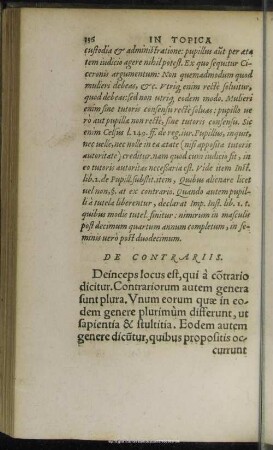 336 IN TOPICA
custodia & administratione: pupillus aūt per æta
tem iudicio agere nihil potest. Ex quo sequitur Ci-
ceronis argumentum: Non quemadmodum quod
mulieri debeas, &c. Vtriq enim rectè soluitur,
quod debeas: sed non vtriq. eodem modo. Mulieri
enim sine tutoris consensu rectè soluas: pupillo ve
rò aut pupilla non rectè, sine tutoris consensu. Sic
enim Celsus l. 189. ff. de reg. iur. Pupillus, inquit,
nec uelle, nec nolle in ea ætate (nisi apposita tutoris
autoritate) creditur. nam quod eius iudicio fit, in
eo tutoris autoritas necessaria est. Vide item Inst.
lib. 2. de Pupill. subst. item, Quibus alienare licet
uel non, §. at ex contrario. Quando autem pupil-
li à tutela liberentur, declarat Imp. Inst. lib. 1. t.
quibus modis tutel. finitur: nimirum in masculis
post decimum quartum annum completum, in fœ-
minis uerò post duodecimum.
DE CONTRARIIS.
Deinceps locus est, qui à cōtrario
dicitur. Contrariorum autem genera
sunt plura. Vnum eorum quæ in eo-
dem genere plurimùm differunt, ut
sapientia & stultitia. Eodem autem
genere dicūtur, quibus propositis oc-
currunt